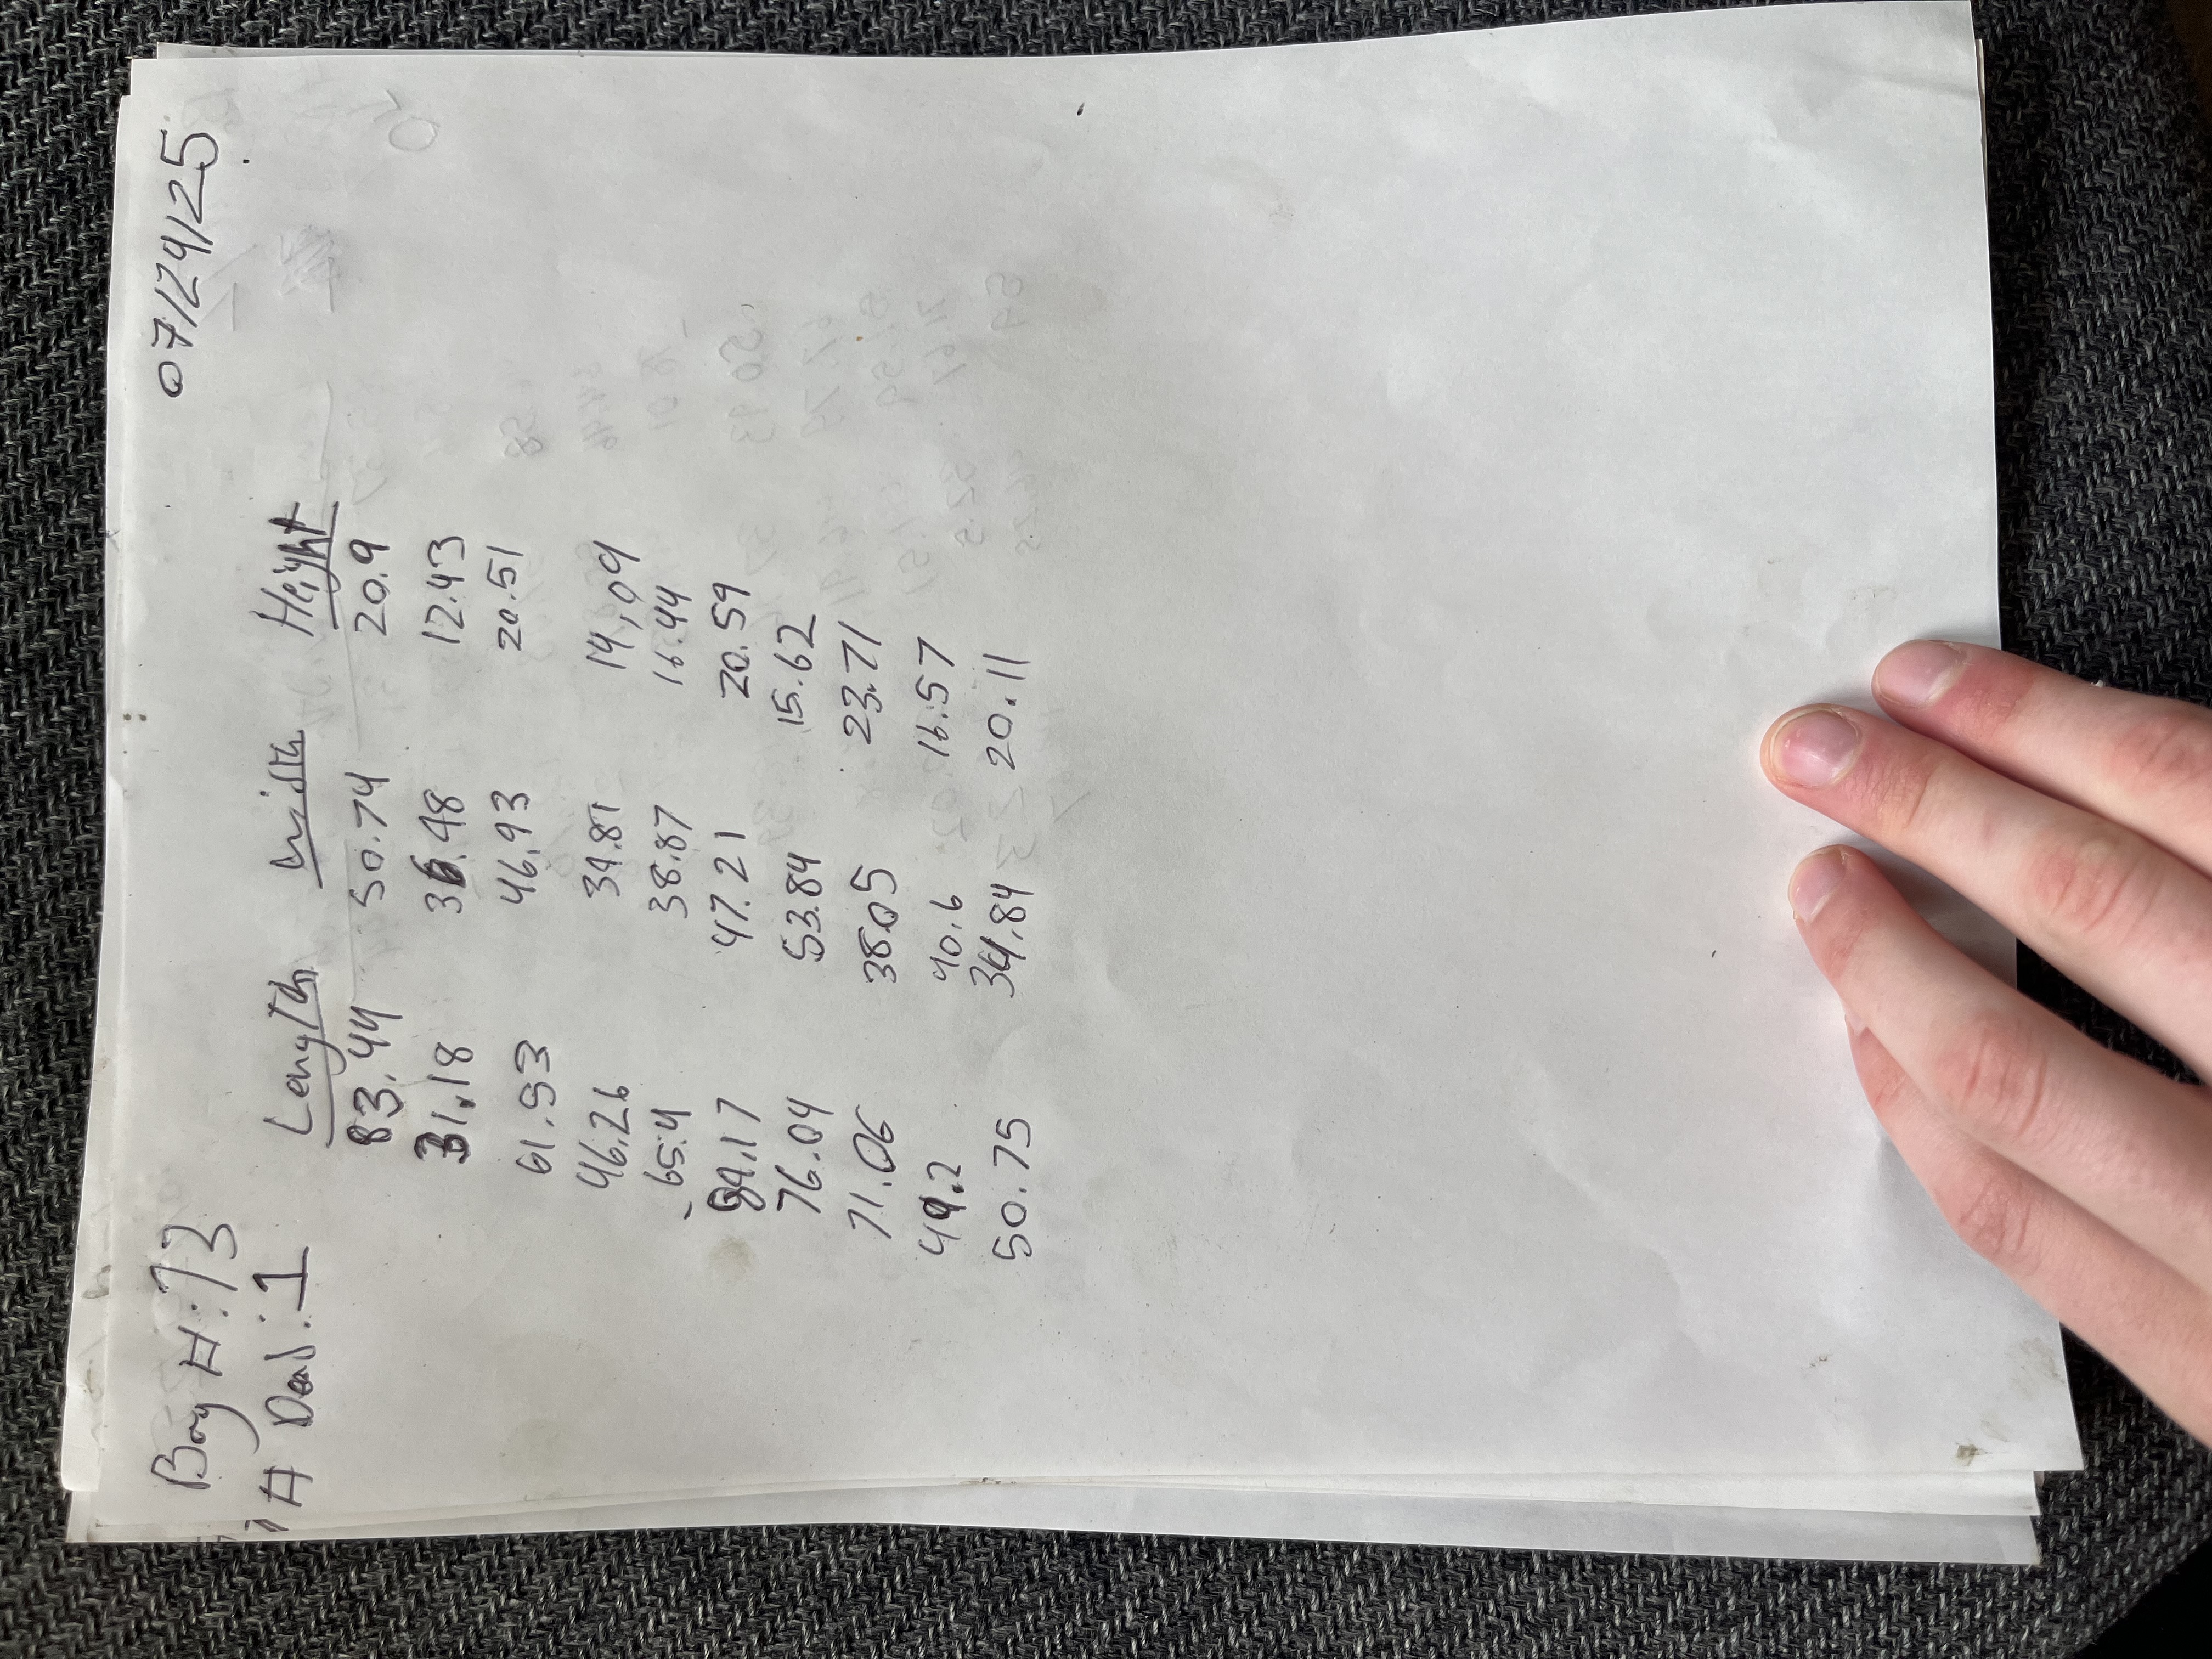 Bag #: 13 07/29/25
# Dead: 1 Length Width Height
83.44 50.74 20.9
31.18 36.48 12.43
61.53 46.93 20.51
46.26 34.81 14,09
65.4 38.87 16.44
47.21 20.59
76.04 53.84 15.62
71.06 38.05 23.71
49.2 40.6 16.57
50.75 34.84 20.11